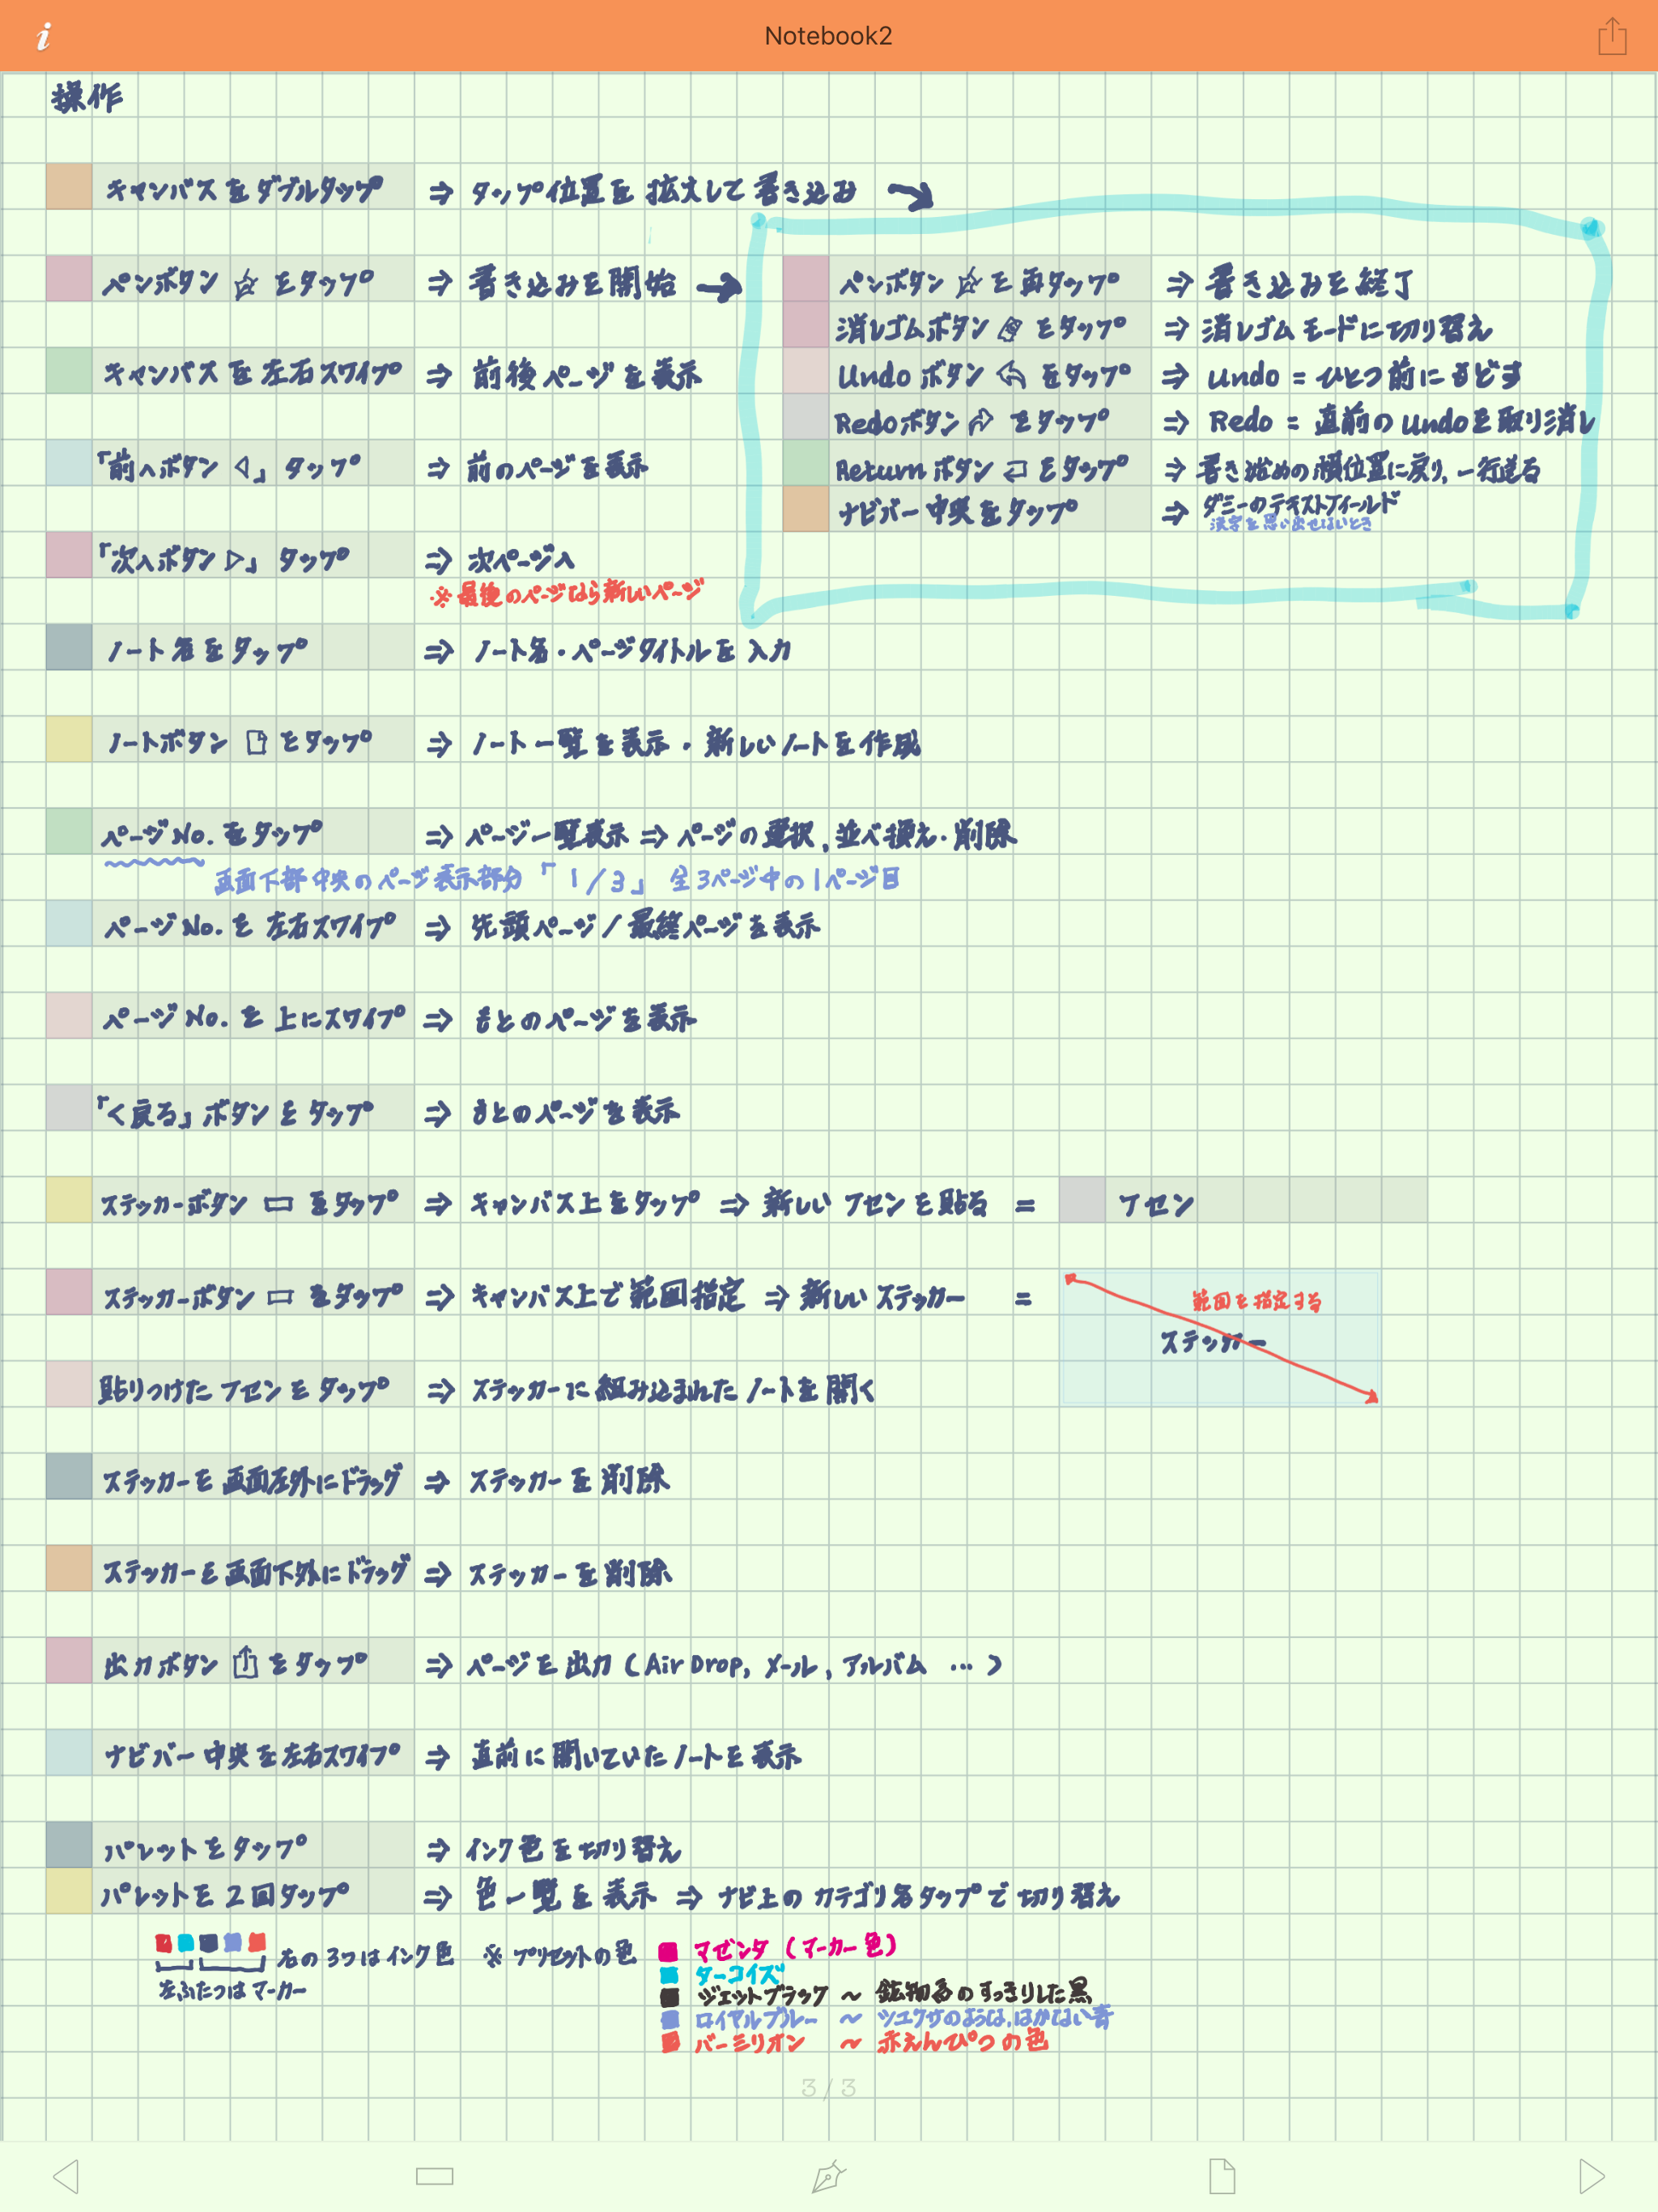 Notebook2
操作
キャンバスをダブルタップ ⇒ タップ位置を拡大して書き込み
ペンボタン をタップ ⇒ 書き込みを開始 →
キャンバスを左右スワイプ ⇒ 前後ページを表示
「前へボタン ◁」タップ ⇒ 前のページを表示
「次へボタン ▷」タップ ⇒ 次ページへ
※ 最後のページなら新しいページ
ペンボタン を再タップ ⇒ 書き込みを終了
消しゴムボタン をタップ ⇒ 消しゴムモードに切り替え
Undoボタン をタップ ⇒ Undo = ひとつ前にもどす
Redoボタン をタップ ⇒ Redo = 直前のUndoを取り消し
Returnボタン をタップ ⇒ 書き始めの横位置に戻り、一行送る
ナビバー中央をタップ ⇒ ダミーのテキストフィールド
漢字を思い出せないとき
ノート名をタップ ⇒ ノート名・ページタイトルを入力
ノートボタン をタップ ⇒ ノート一覧を表示・新しいノートを作成
ページNo.をタップ ⇒ ページ一覧表示 ⇒ ページの選択,並べ換え・削除
画面下部中央のページ表示部分「1/3」 全3ページ中の1ページ目
ページNo.を左右スワイプ ⇒ 先頭ページ/最終ページを表示
ページNo.を上にスワイプ ⇒ もとのページを表示
「く戻る」ボタンをタップ ⇒ もとのページを表示
ステッカーボタン をタップ ⇒ キャンバス上をタップ ⇒ 新しいフセンを貼る = フセン
ステッカーボタン をタップ ⇒ キャンバス上で範囲指定 ⇒ 新しいステッカー =
範囲を指定する
ステッカー
貼りつけたフセンをタップ ⇒ ステッカーに組み込まれたノートを開く
ステッカーを画面左外にドラッグ ⇒ ステッカーを削除
ステッカーを画面下外にドラッグ ⇒ ステッカーを削除
出力ボタン をタップ ⇒ ページを出力(AirDrop, メール, アルバム …)
ナビバー中央を左右スワイプ ⇒ 直前に開いていたノートを表示
パレットをタップ ⇒ インク色を切り替え
パレットを2回タップ ⇒ 色一覧を表示 ⇒ ナビ上のカテゴリ名タップで切り替え
右の3つはインク色 ※ プリセットの色
左ふたつはマーカー
マゼンタ(マーカー色)
ターコイズ
ジェットブラック ~ 鉱物名のすっきりした黒
ロイヤルブルー ~ ツユクサのような,はかない青
バーミリオン ~ 赤えんぴつの色
3/3